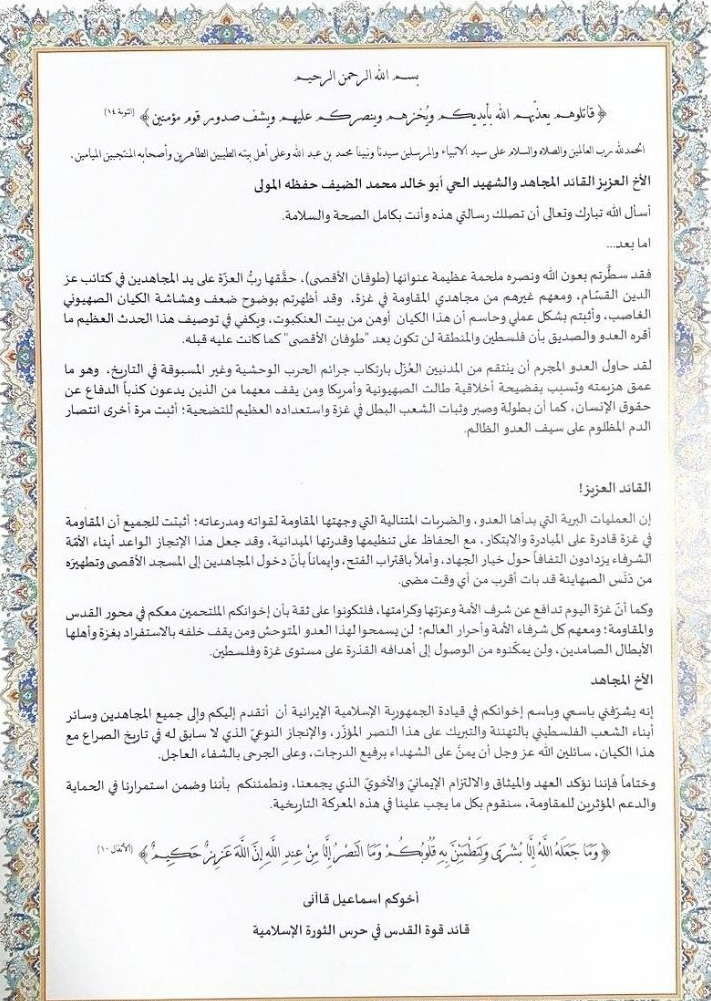 بسم الله الرحمن الرحيم
﴿ قاتلوهم يعذّبهم الله بأيديكم ويُخزهم وينصركم عليهم ويشف صدور قوم مؤمنين ﴾ (التوبة ١٤)
الحمدلله رب العالمين والصلاة والسلام على سيد الانبياء والمرسلين سيدنا ونبينا محمد بن عبد الله وعلى أهل بيته الطيبين الطاهرين وأصحابه المنتجبين الميامين.
الأخ العزيز القائد المجاهد والشهيد الحي أبو خالد محمد الضيف حفظه المولى
أسأل الله تبارك وتعالى أن تصلك رسالتي هذه وأنت بكامل الصحة والسلامة.
اما بعد...
فقد سطَّرتم بعون الله ونصره ملحمة عظيمة عنوانها (طوفان الأقصى)، حقَّقها ربُّ العزّة على يد المجاهدين في كتائب عز
الدين القسّام، ومعهم غيرهم من مجاهدي المقاومة في غزة، وقد أظهرتم بوضوح ضعف وهشاشة الكيان الصهيوني
الغاصب، وأثبتم بشكل عملي وحاسم أن هذا الكيان أوهن من بيت العنكبوت، ويكفي في توصيف هذا الحدث العظيم ما
أقره العدو والصديق بأن فلسطين والمنطقة لن تكون بعد "طوفان الأقصى" كما كانت عليه قبله.
لقد حاول العدو المجرم أن ينتقم من المدنيين العُزّل بارتكاب جرائم الحرب الوحشية وغير المسبوقة في التاريخ، وهو ما
عمق هزيمته وتسبب بفضيحة أخلاقية طالت الصهيونية وأمريكا ومن يقف معهما من الذين يدعون كذباً الدفاع عن
حقوق الإنسان، كما أن بطولة وصبر وثبات الشعب البطل في غزة واستعداده العظيم للتضحية؛ أثبت مرة أخرى انتصار
الدم المظلوم على سيف العدو الظالم.
القائد العزيز!
إن العمليات البرية التي بدأها العدو، والضربات المتتالية التي وجهتها المقاومة لقواته ومدرعاته؛ أثبتت للجميع أن المقاومة
في غزة قادرة على المبادرة والابتكار، مع الحفاظ على تنظيمها وقدرتها الميدانية، وقد جعل هذا الإنجاز الواعد أبناء الأمّة
الشرفاء يزدادون التفافاً حول خيار الجهاد، وأملاً باقتراب الفتح، وإيماناً بأنّ دخول المجاهدين إلى المسجد الأقصى وتطهيرَه
من دَنَس الصهاينة قد بات أقرب من أي وقت مضى.
وكما أنّ غزة اليوم تدافع عن شرف الأمة وعزتها وكرامتها، فلتكونوا على ثقة بأن إخوانكم الملتحمين معكم في محور القدس
والمقاومة؛ ومعهم كل شرفاء الأمة وأحرار العالم؛ لن يسمحوا لهذا العدو المتوحش ومن يقف خلفه بالاستفراد بغزة وأهلها
الأبطال الصامدين، ولن يمكّنوه من الوصول إلى أهدافه القذرة على مستوى غزة وفلسطين.
الأخ المجاهد
إنه يشرّفني باسمي وباسم إخوانكم في قيادة الجمهورية الإسلامية الإيرانية أن أتقدم إليكم وإلى جميع المجاهدين وسائر
أبناء الشعب الفلسطيني بالتهنئة والتبريك على هذا النصر المؤزّر، والإنجاز النوعيّ الذي لا سابق له في تاريخ الصراع مع
هذا الكيان، سائلين الله عز وجل أن يمنّ على الشهداء برفيع الدرجات، وعلى الجرحى بالشفاء العاجل.
وختاماً فإننا نؤكد العهد والميثاق والالتزام الإيمانيّ والأخويّ الذي يجمعنا، ونطمئنكم بأننا وضمن استمرارنا في الحماية
والدعم المؤثرين للمقاومة، سنقوم بكل ما يجب علينا في هذه المعركة التاريخية.
﴿ وَمَا جَعَلَهُ اللَّهُ إِلَّا بُشْرَى وَلِتَطْمَئِنَّ بِهِ قُلُوبُكُمْ وَمَا النَّصْرُ إِلَّا مِنْ عِندِ اللَّهِ إِنَّ اللَّهَ عَزِيزٌ حَكِيمٌ ﴾ (الأنفال ١٠)
أخوكم اسماعيل قاآنی
قائد قوة القدس في حرس الثورة الإسلامية